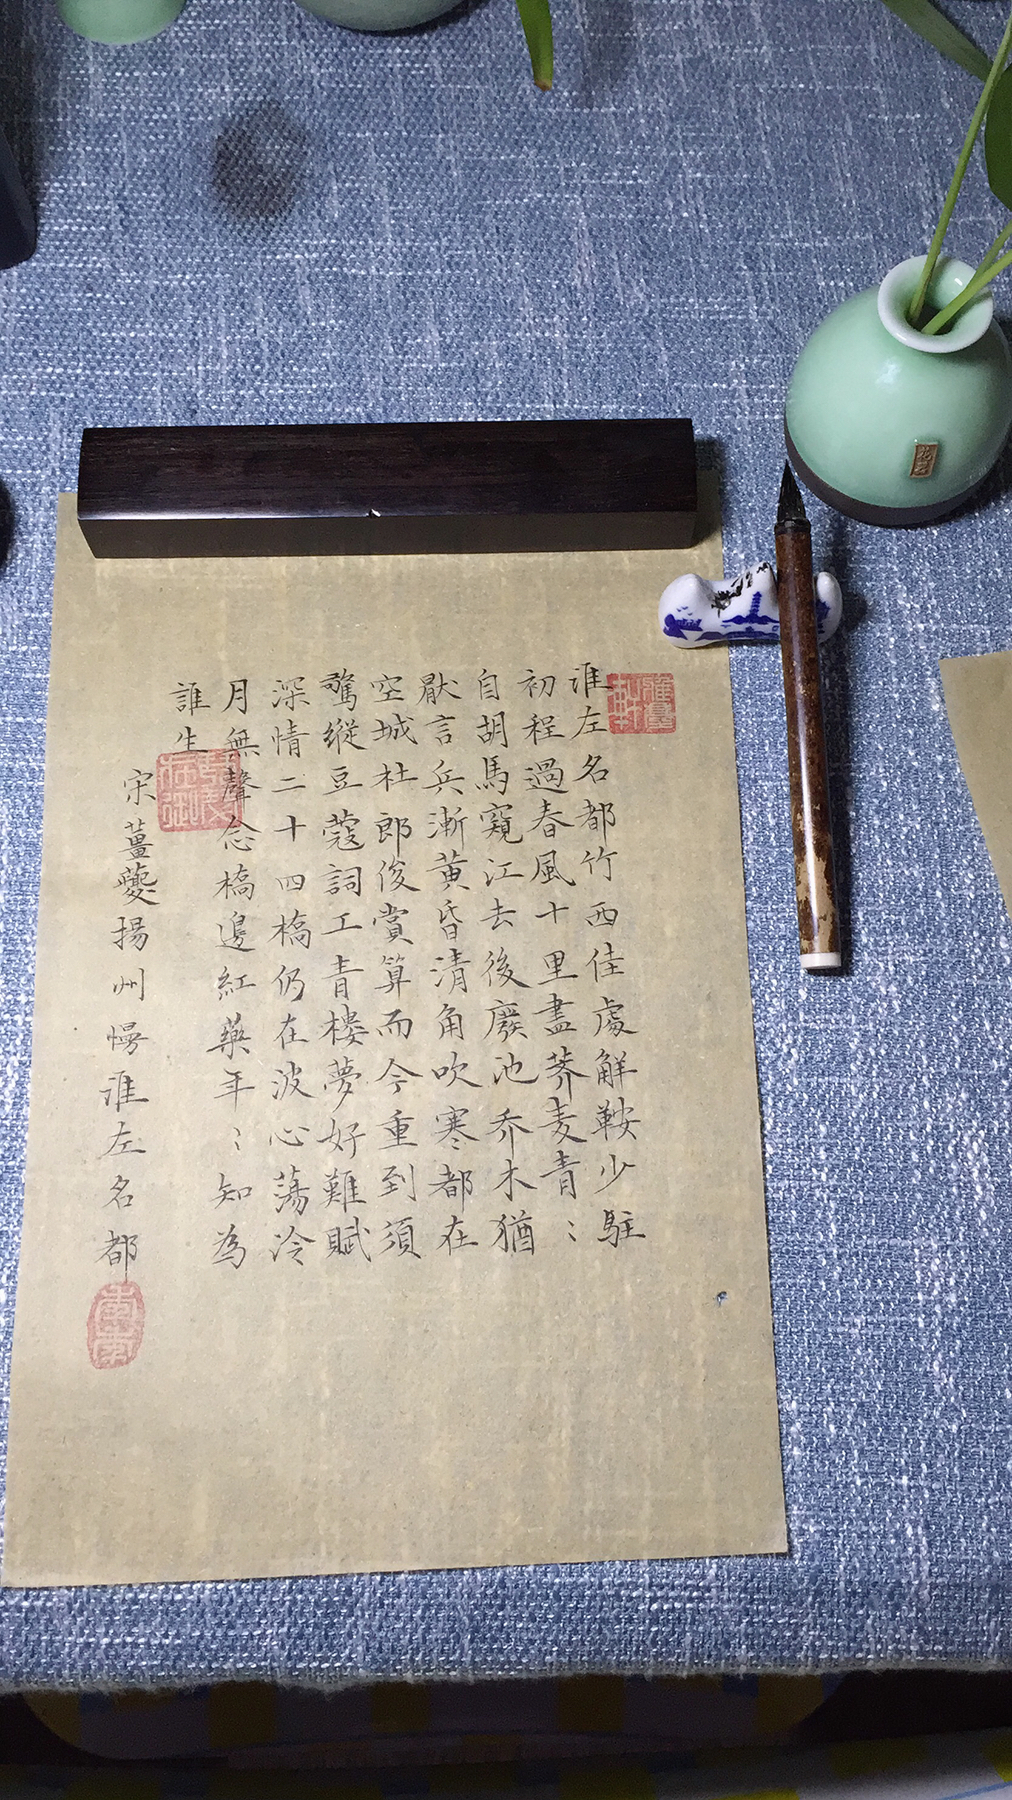 淮左名都竹西佳處解鞍少駐
初程過春風十里盡薺麦青〻
自胡馬窺江去後廢池乔木猶
厭言兵漸黄昏清角吹寒都在
空城杜郎俊賞算而今重到須
驚縱豆蔻詞工青樓夢好難賦
深情二十四橋仍在波心蕩冷
月無聲念橋邊紅藥年〻知為
誰生
宋薑夔揚州慢淮左名都